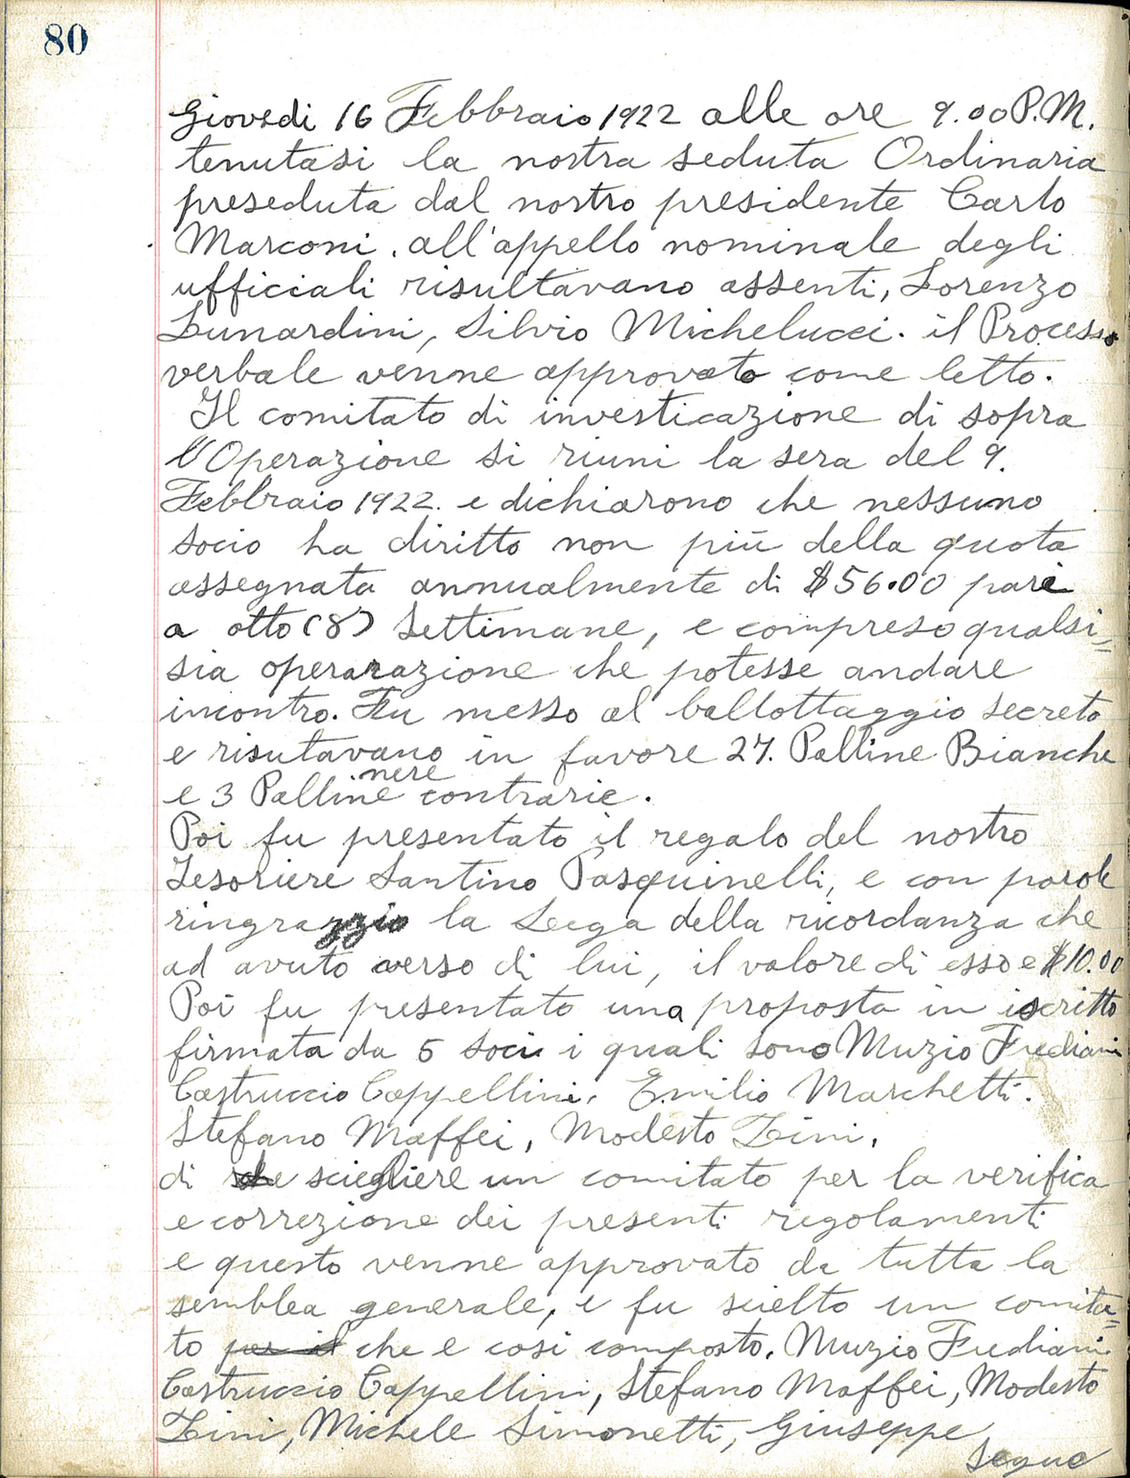 80
Giovedi 16 Febbraio 1922 alle ore 9.00 P.M.
tenutasi la nostra seduta Ordinaria
preseduta dal nostro presidente Carlo
Marconi. all'appello nominale degli
ufficiali risultavano assenti, Lorenzo
Lunardini, Silvio Michelucci. il Processo
verbale venne approvato come letto.
Il comitato di investicazione di sopra
l'Operazione si riuni la sera del 9.
Febbraio 1922. e dichiarono che nessuno
socio ha diritto non più della quota
assegnata annualmente di $56.00 pari
a otto (8) Settimane, e compreso qualsi=
sia operarazione che potesse andare
incontro. Fu messo al ballottaggio secreto
e risutavano in favore 27. Palline Bianche
e 3 Palline nere contrarie.
Poi fu presentato il regalo del nostro
Tesoriere Santino Pasquinelli, e con parole
ringrazzio la Leega della ricordanza che
ad avuto averso di lui, il valore di esso e $10.00
Poi fu presentato una proposta in iscritto
firmata da 5 socii i quali sono Muzio Frediani
Castruccio Cappellini, Emilio Marchetti.
Stefano Maffei, Modesto Zini,
di sciegliere un comitato per la verifica
e correzione dei presenti regolamenti
e questo venne approvato da tutta la
semblea generale, e fu scielto un comita=
to per il che e cosi composto. Muzio Frediani
Castruccio Cappellini, Stefano Maffei, Modesto
Zini, Michele Simonetti, Giuseppe
Segue